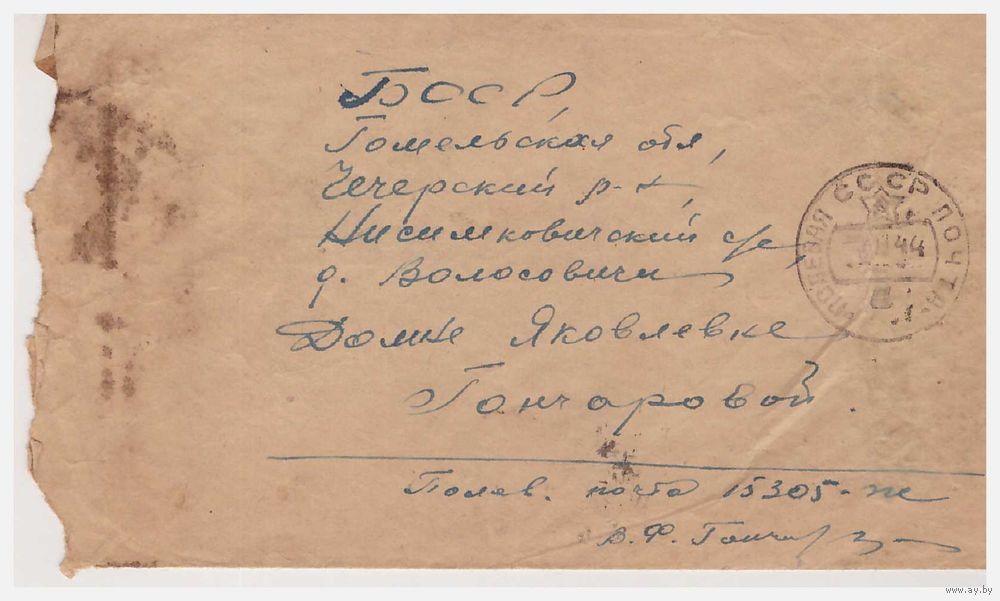 БССР,
Гомельская обл,
Чечерский р-н,
Нисимковичский с/с
д. Волосовичи
Домне Яковлевке
Гончаровой.
Полев. почта 15305-ж
В.Ф. Гончар
ПОЛЕВАЯ СССР ПОЧТА
44
www.ay.by